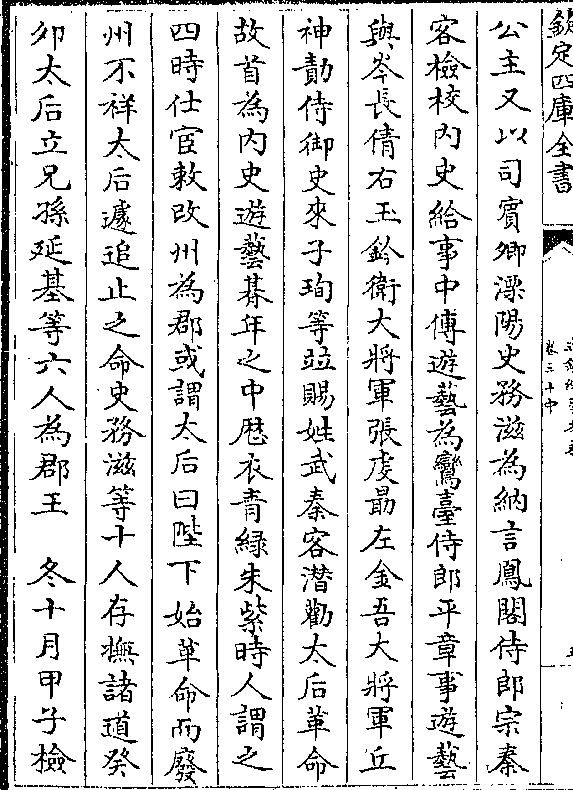 欽定四庫全書
公主又以司賓卿溧陽史務滋為納言鳳閣侍郎宗秦
客檢校內史給事中傅遊藝為鸞臺侍郎平章事遊藝
與岑長倩右玉鈐衛大將軍張虔勗左金吾大將軍丘
神勣侍御史來子珣等竝賜姓武秦客潛勸太后革命
故首為內史遊藝朞年之中厯衣青綠朱紫時人謂之
四時仕宦敕改州為郡或謂太后曰陛下始革命而廢
州不祥太后遽追止之命史務滋等十人存撫諸道癸
卯太后立兄孫延基等六人為郡王　冬十月甲子檢